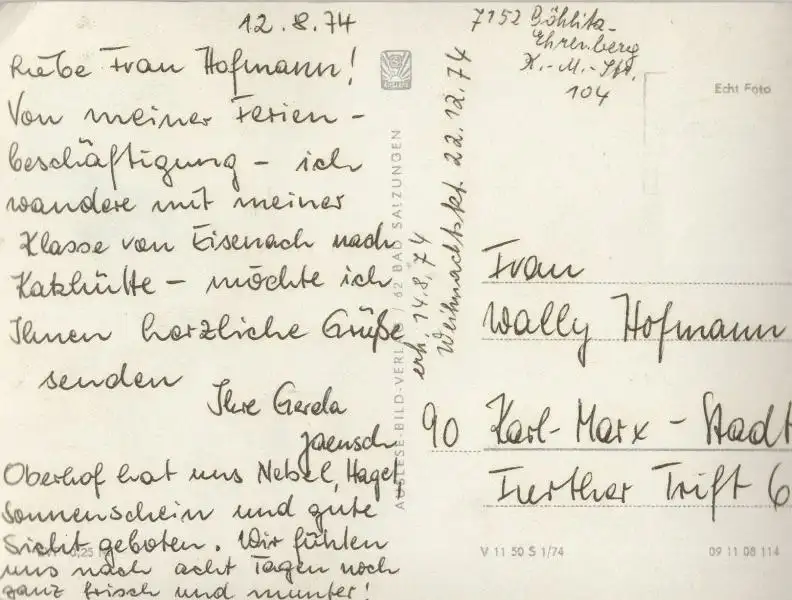 12.8.74
Liebe Frau Hofmann!
Von meiner Ferien-
beschäftigung – ich
wandere mit meiner
Klasse von Eisenach nach
Katzhütte – möchte ich
Ihnen herzliche Grüße
senden
Ihre Gerda
Jaensch
Oberhof hat uns Nebel, Hagel,
Sonnenschein und gute
Sicht geboten. Wir fühlen
uns nach acht Tagen noch
ganz frisch und munter!
AUSLESE-BILD-VERL / 62 BAD SALZUNGEN
erh. 14.8.74
Weihnachtskt. 22.12.74
7152 Böhlitz-
Ehrenberg
K.-M.-Str.
104
Echt Foto
Frau
Wally Hofmann
90 Karl-Marx-Stadt
Further Trift 6
V 11 50 S 1/74
09 11 08 114